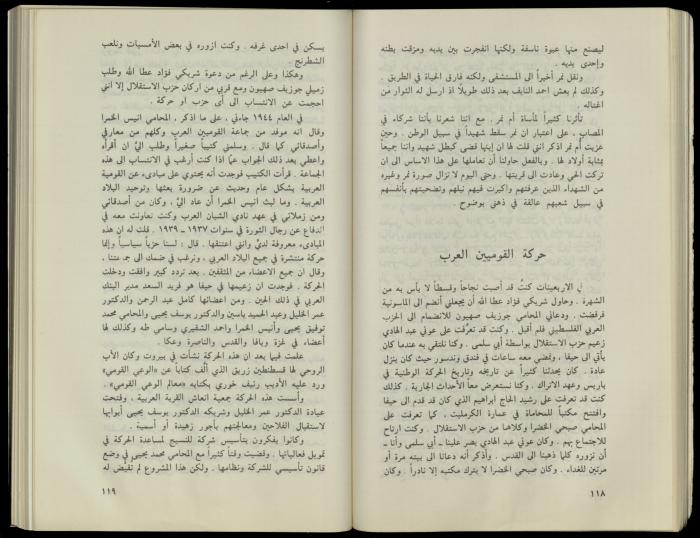 ليصنع منها عبوة ناسفة ولكنها انفجرت بين يديه ومزقت بطنه
وإحدى يديه .
ونقل نمر أخيراً الى المستشفى ولكنه فارق الحياة في الطريق .
وكذلك لم يعش احمد النايف بعد ذلك طويلاً اذ ارسل له الثوار من
اغتاله .
تأثرنا كثيراً لمأساة أم نمر . مع اننا شعرنا بأننا شركاء في
المصاب ، على اعتبار ان نمر سقط شهيداً في سبيل الوطن . وحين
عزيت أم نمر اذكر انني قلت لها ان إبنها قضى كبطل شهيد واننا جميعاً
بمثابة أولاد لها . وبالفعل حاولنا أن نعاملها على هذا الاساس الى ان
تركت الحي وعادت الى قريتها . وحتى اليوم لا تزال صورة نمر وغيره
من الشهداء الذين عرفتهم واكبرت فيهم نبلهم وتضحيتهم بأنفسهم
في سبيل شعبهم عالقة في ذهني بوضوح .
حركة القوميين العرب
في الاربعينات كنت قد أصبت نجاحاً وقسطاً لا بأس به من
الشهرة . وحاول شريكي فؤاد عطا الله أن يجعلني أنضم الى الماسونية
فرفضت . ودعاني المحامي جوزيف صهيون للانضمام الى الحزب
العربي الفلسطيني فلم أقبل . وكنت قد تعرّفت على عوني عبد الهادي
زعيم حزب الاستقلال بواسطة أبي سلمى . وكنا نلتقي به عندما كان
يأتي الى حيفا . ونقضي معه ساعات في فندق وندسور حيث كان ينزل
عادة . كان يحدثنا كثيراً عن تاريخه وتاريخ الحركة الوطنية في
باريس وعهد الاتراك . وكنا نستعرض معاً الأحداث الجارية . كذلك
كنت قد تعرفت على رشيد الحاج ابراهيم الذي كان قد قدم الى حيفا
وافتتح مكتباً للمحاماة في عمارة الكرمليت ، كما تعرفت على
المحامي صبحي الخضرا وكلاهما من حزب الاستقلال . وكنت ارتاح
للاجتماع بهم . وكان عوني عبد الهادي يصر علينا ـ أبي سلمى وأنا ـ
أن نزوره كلما ذهبنا الى القدس . وأذكر أنه دعانا الى بيته مرة أو
مرتين للغداء . وكان صبحي الخضرا لا يترك مكتبه إلا نادراً . وكان
١١٨
يسكن في احدى غرفه . وكنت ازوره في بعض الأمسيات ونلعب
الشطرنج .
وهكذا وعلى الرغم من دعوة شريكي فؤاد عطا الله وطلب
زميلي جوزيف صهيون ومع قربي من اركان حزب الاستقلال إلا أنني
احجمت عن الانتساب الى أي حزب او حركة .
في العام ١٩٤٤ جاءني ، على ما اذكر ، المحامي انيس الخمرا
وقال انه موفد من جماعة القوميين العرب وكلهم من معارفي
وأصدقائي كما قال . وسلمني كتيباً صغيراً وطلب اليّ ان أقرأه
واعطي بعد ذلك الجواب عمّا اذا كنت أرغب في الانتساب الى هذه
الجماعة . قرأت الكتيب فوجدت أنه يحتوي على مبادىء عن القومية
العربية بشكل عام وحديث عن ضرورة بعثها وتوحيد البلاد
العربية . وما لبث انيس الخمرا أن عاد اليّ ، وكان من أصدقائي
ومن زملائي في عهد نادي الشبان العرب وكنت تعاونت معه في
الدفاع عن رجال الثورة في سنوات ١٩٣٧ ـ ١٩٣٩ . قلت له ان هذه
المبادىء معروفة لديّ وانني اعتنقها . قال : لسنا حزباً سياسياً وإنما
حركة منتشرة في جميع البلاد العربي ، ونرغب في ضمك الى جماعتنا ،
وقال ان جميع الاعضاء من المثقفين . بعد تردد كبير وافقت ودخلت
الحركة . فوجدت ان زعيمها في حيفا هو فريد السعد مدير البنك
العربي في ذلك الحين . ومن اعضائها كامل عبد الرحمن والدكتور
عمر الخليل وعبد الحميد ياسين والدكتور يوسف يحيى والمحامي محمد
توفيق يحيى وأنيس الخمرا واحمد الشقيري وسامي طه وكذلك لها
أعضاء في غزة ويافا والقدس والناصرة وعكا .
علمت فيما بعد ان هذه الحركة نشأت في بيروت وكان الأب
الروحي لها قسطنطين زريق الذي ألّف كتاباً عن «الوعي القومي»
ورد عليه الأديب رئيف خوري بكتابه «معالم الوعي القومي» .
وأسست هذه الحركة جمعية انعاش القرية العربية ، وفتحت
عيادة الدكتور عمر الخليل وشريكه الدكتور يوسف يحيى أبوابها
لاستقبال الفلاحين ومعالجتهم بأجور زهيدة أو أسمية .
وكانوا يفكرون بتأسيس شركة للنسيج لمساعدة الحركة في
تمويل فعالياتها . وقضيت وقتاً كثيراً مع المحامي محمد يحيى في وضع
قانون تأسيسي للشركة ونظامها . ولكن هذا المشروع لم تقيّض له
١١٩